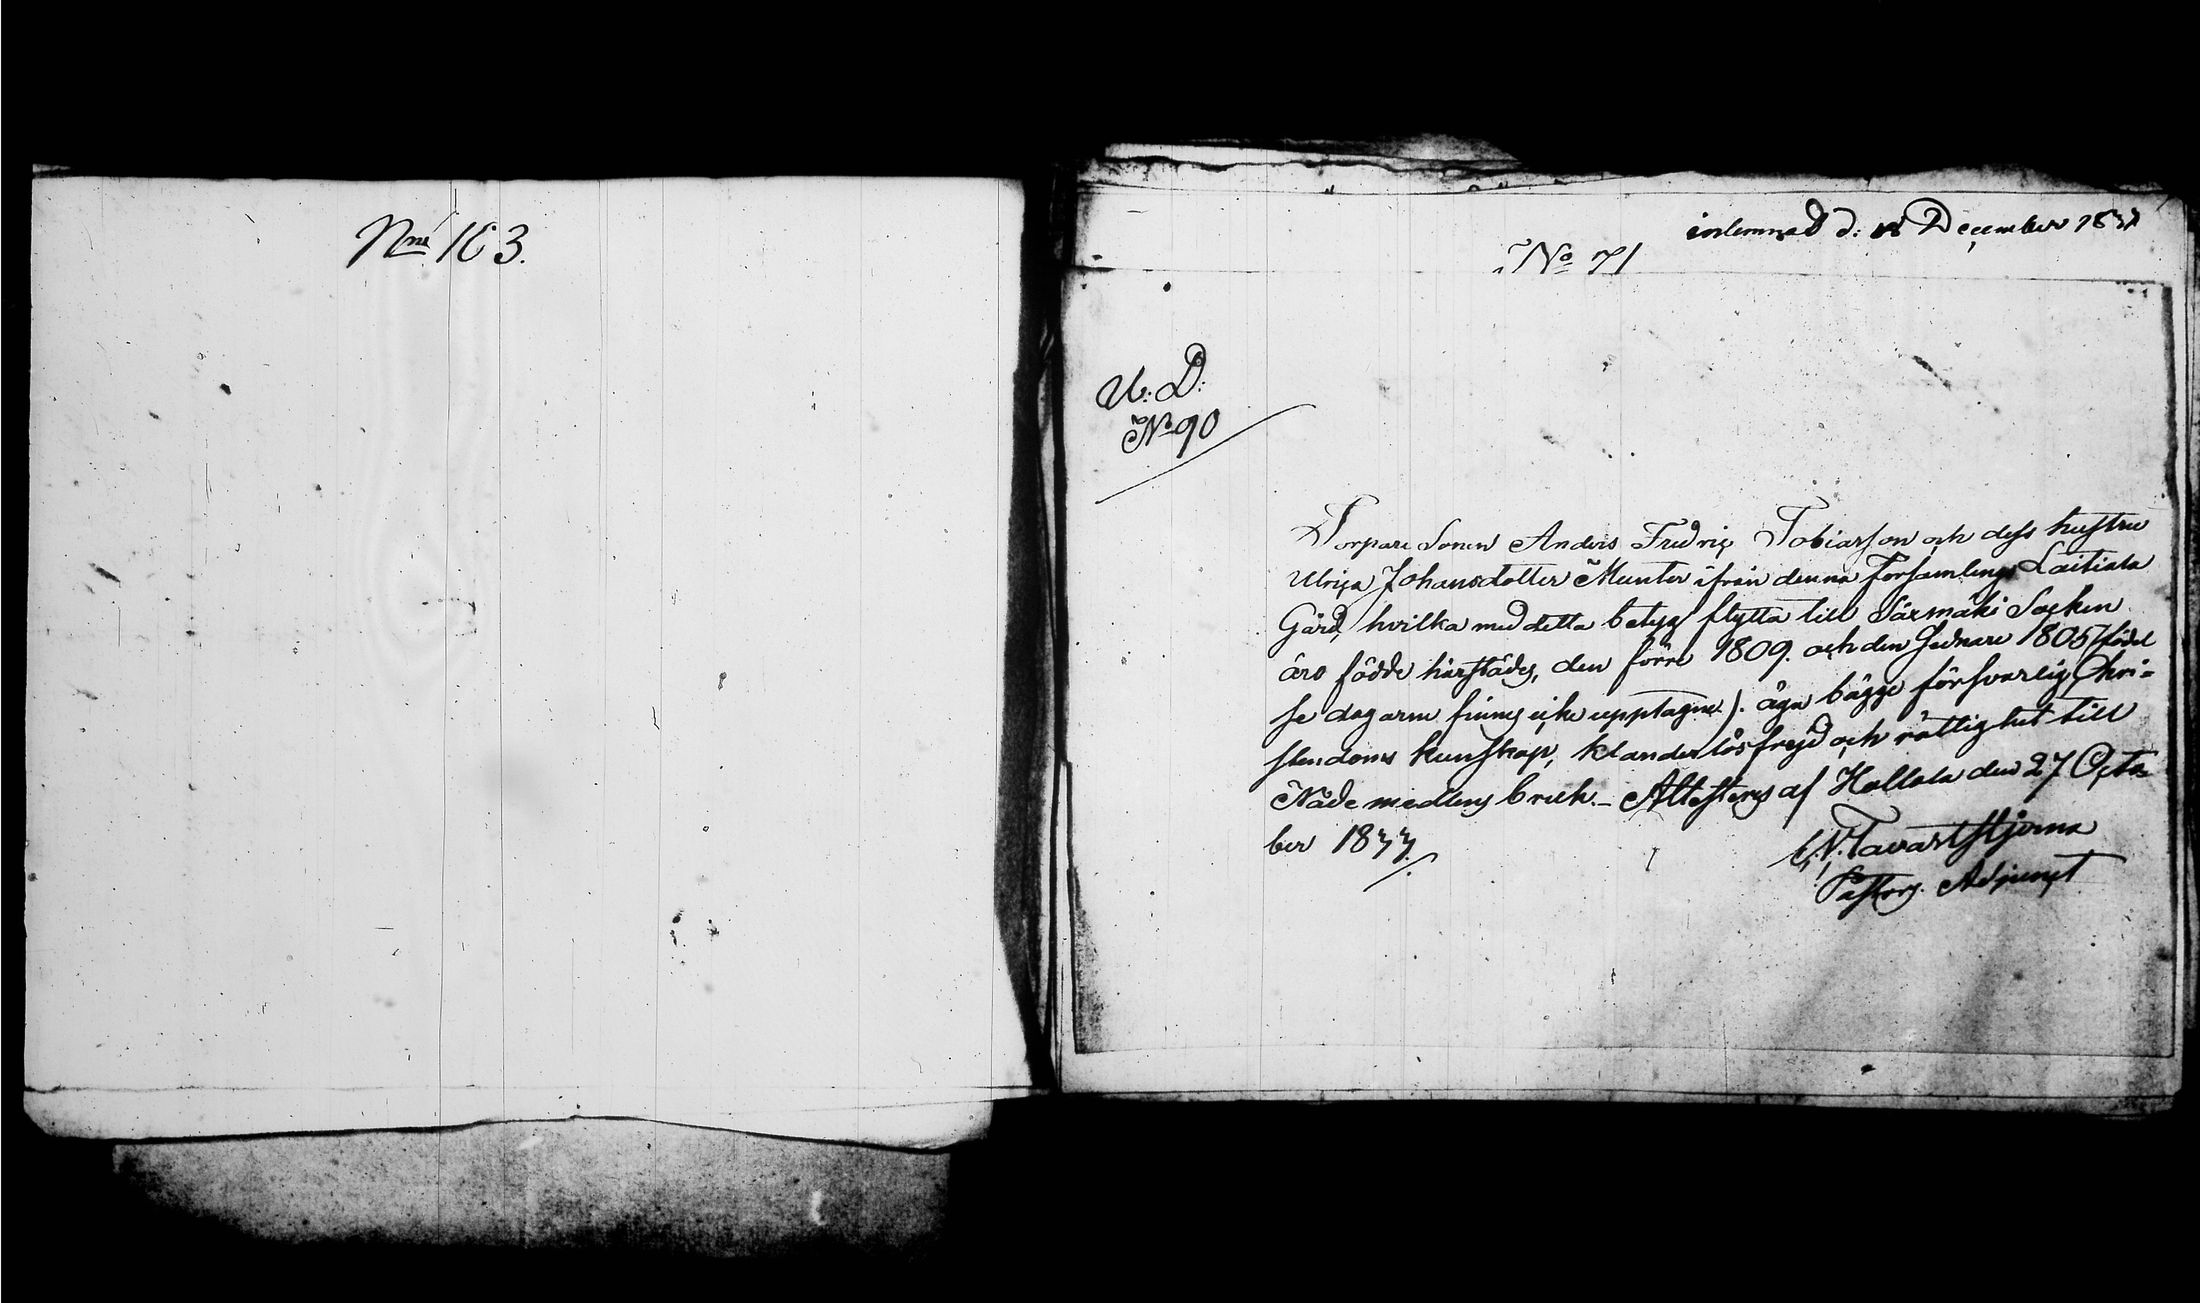 Nrne 163.
inlemnad d: 18 December 1833
No 71
U: D:
No 90
Torpare Sonen Anders Fredric Tobiasson och dess hustru
Ulrica Johansdotter Munter ifrån denna Församlings Laitiala
Gård, hvilka med detta betyg flytta till Särmäki Socken
äro födde härstädes, den förre 1809. och den sednare 1805 (födel
se dagarne finnes icke upptagne). äga bägge försvarlig Chri-
stendoms kunskap, klanderlös frejd och rättighet till
Nåde medlens bruk. – Attesteras af Hollola den 27 Octo
ber 1833.
C. N. Tavaststjerna
Pastors Adjunct